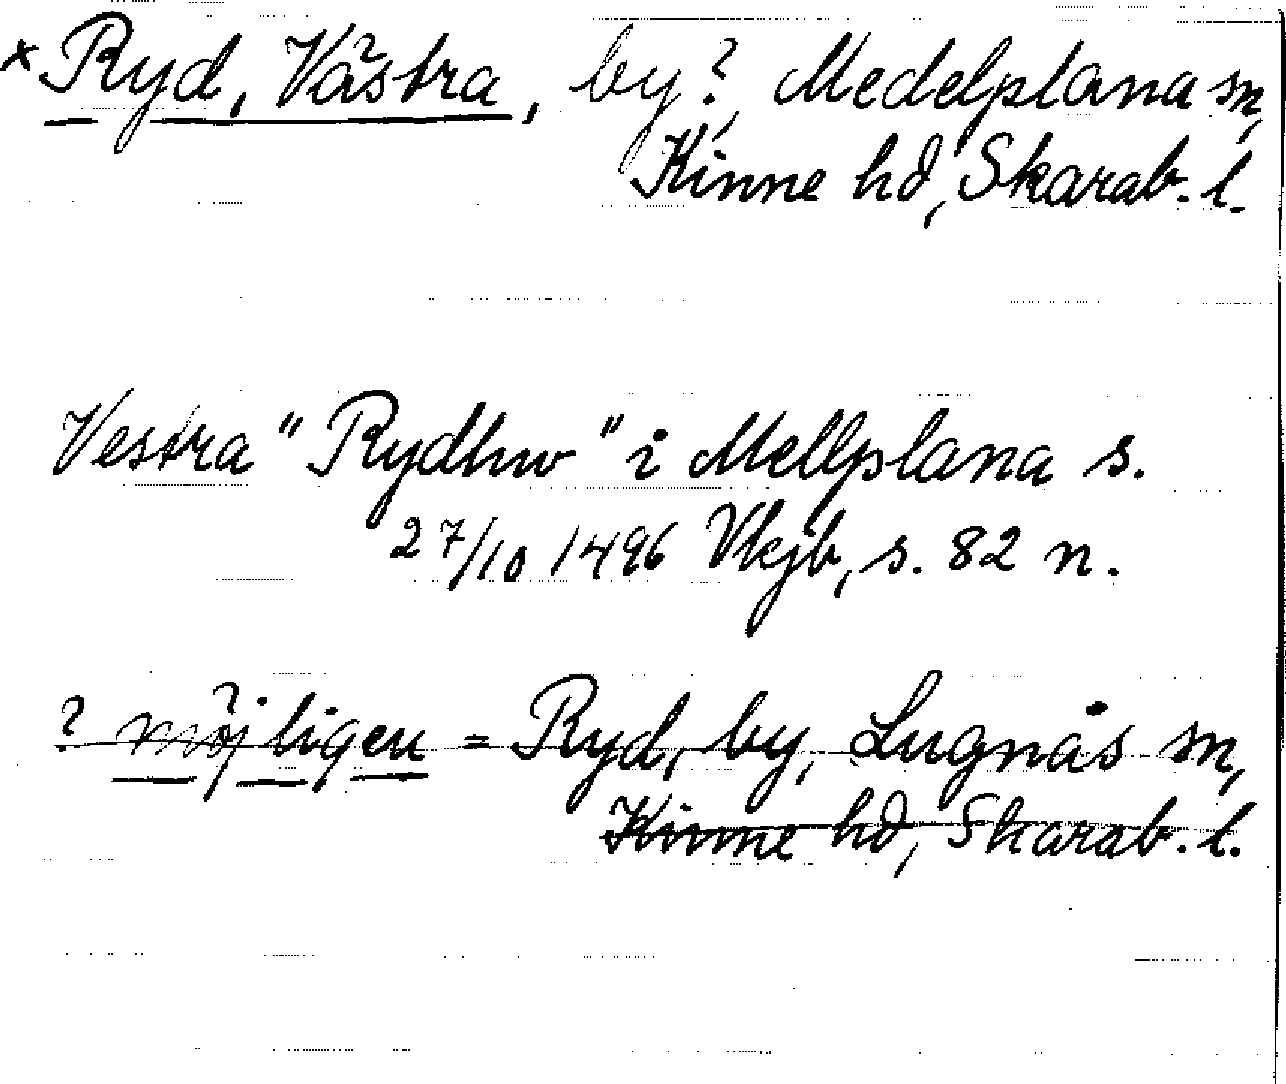 ×Ryd, Västra, by?, Medelplana sn,
Kinne hd, Skarab. l.
Vestra "Rydhw" i Mellplana s.
27/10 1496 Vkjb, s. 82 n.
? möjligen = Ryd, by, Lugnås sn,
Kinne hd, Skarab. l.